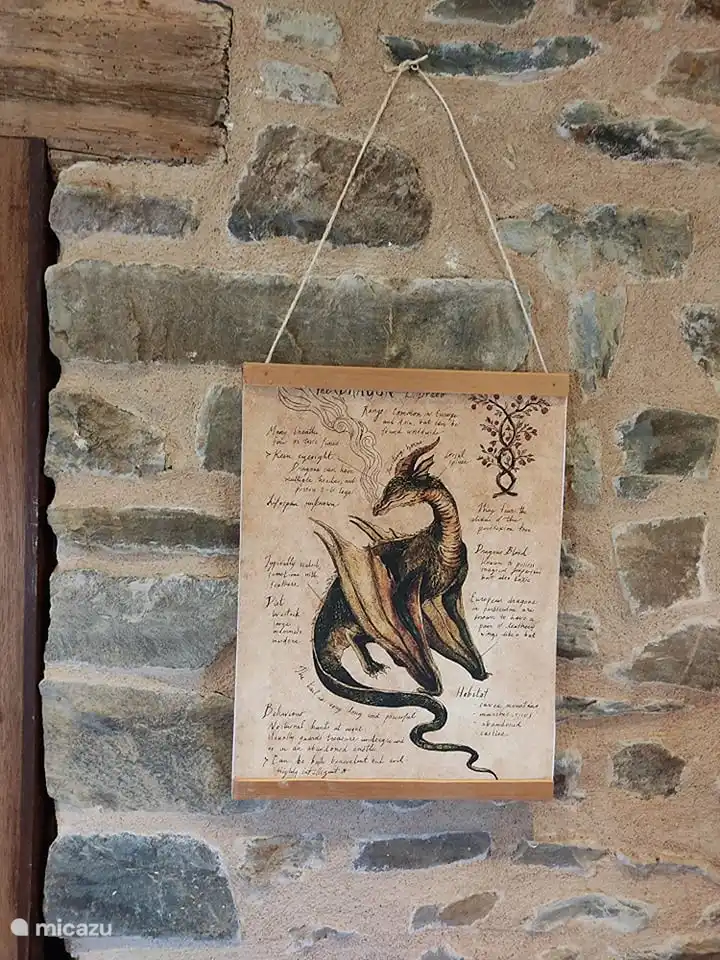 Range: Common in Europe
and Asia, but can be
found worldwide
Many breathe
fire or toxic fumes
> Keen eyesight
Dragons can have
multiple heads, and
possess 2-6 legs
Lifespan unknown
dorsal
spines
They fear the
of the
tree
Typically scaled,
sometimes with
feathers
Dragons Blood
known to possess
magical properties
but also toxic
Diet
livestock
large
European dragons
in particular are
known to have a
pair of leathery
wings like a bat
The tail is very long and powerful
Habitat
- caves mountains
- abandoned
- castles
Behaviour
Nocturnal hunts at night
Usually guards treasure underground
or in an abandoned castle
> Can be both benevolent but evil
Highly intelligent
micazu